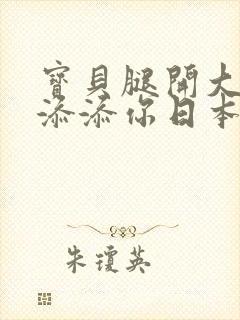 寶貝腿開大
添添你日本
朱瓊英